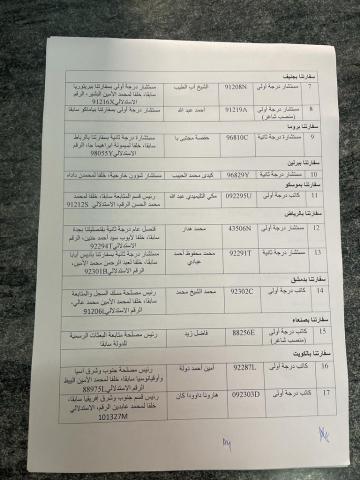 سفارتنا بجنيف
7 مستشار درجة أولى 91208N الشيخ أب الطيب مستشار درجة أولى بسفارتنا ببريتوريا
سابقا، خلفا لمحمد الأمين البشير، الرقم
الاستدلالي 91216X
8 مستشار درجة أولى 91219A أحمد عبد الله مستشار درجة أولى بسفارتنا بباماكو سابقا
(منصب شاغر)
سفارتنا بروما
9 مستشارة درجة ثانية 96810C حفصة مجتبى با مستشارة درجة ثانية بسفارتنا بالرباط
سابقا، خلفا لميمونة ابراهيما جا، الرقم
الاستدلالي 98055Y
سفارتنا ببرلين
10 مستشار درجة ثانية 96829Y كيدى محمد الحبيب مستشار شؤون خارجية، خلفا لمحمدن داداه
سفارتنا بموسكو
11 كاتب درجة أولى 092295U مكي التلميدي عبد الله رئيس قسم المتابعة سابقا، خلفا لمحمد
محمد الحسن الرقم، الاستدلالي 91212S
سفارتنا بالرياض
12 مستشار درجة ثانية 43506N محمد هدار قنصل عام درجة ثانية بقنصليتنا بجدة
سابقا، خلفا لأيوب سيد أحمد حنين، الرقم
الاستدلالي 92294T
13 مستشار درجة ثانية 92291T محمد محفوظ أحمد مستشار درجة ثانية بسفارتنا بأديس أبابا
عبادي سابقا، خلفا لعبد الرحمن محمد الأمين،
الرقم الاستدلالي 92301B
سفارتنا بدمشق
14 كاتب درجة أولى 92302C محمد الشيخ محمد رئيس مصلحة مسك السجل والمتابعة
سابقا، خلفا لمحمد الأمين محمد عالي،
الرقم الاستدلالي 91206L
سفارتنا بصنعاء
15 كاتب درجة أولى 88256E فاضل زيد رئيس مصلحة متابعة البعثات الرسمية
(منصب شاغر) للدولة سابقا
سفارتنا بالكويت
16 كاتب درجة أولى 92287L أمين أحمد دولة رئيس مصلحة جنوب وشرق آسيا
وأوقيانوسيا سابقا، خلفا لمحمد الأمين
الرقم الاستدلالي 88975L
17 كاتب درجة أولى 092303D هارونا داوودا كان رئيس قسم جنوب وشرق إفريقيا سابقا،
خلفا لمحمد عابدين الرقم، الاستدلالي
101327M